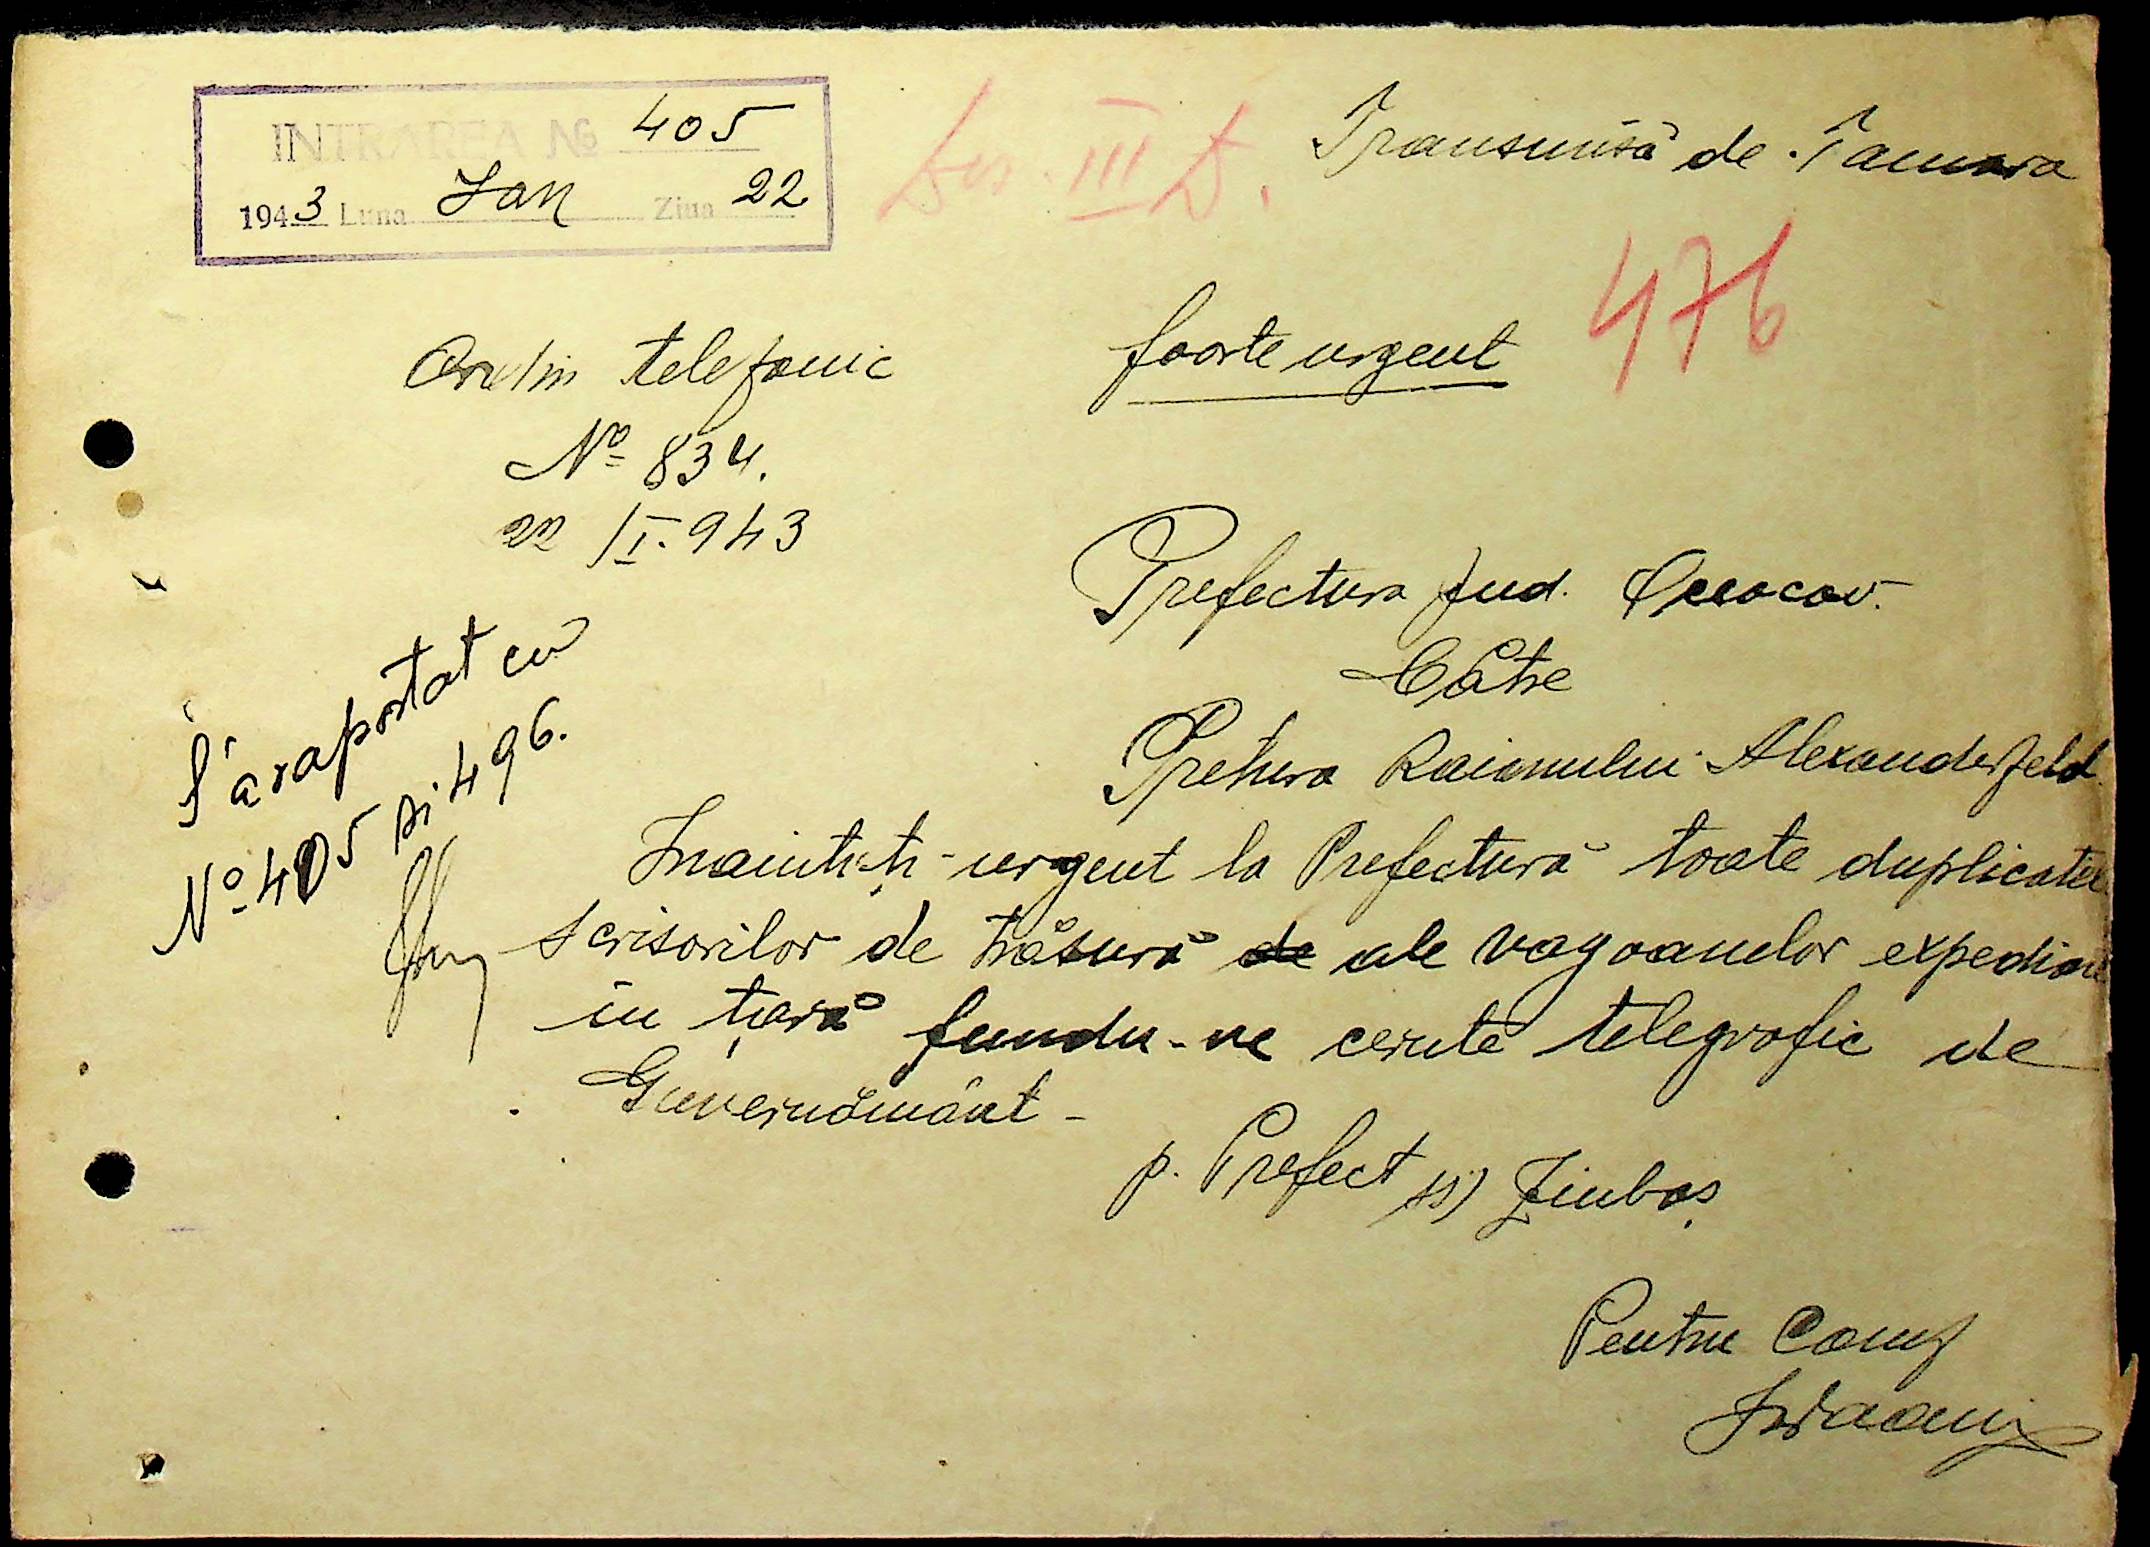 INTRAREA No 405
1943 Luna Jan Ziua 22
III D.
Transmisă de Tamara
476
Ordin telefonic
foarte urgent
No 834.
22/I.943
Prefectura Jud. Oceacov.
Către
Pretura Raionului Alexanderfeld
S'a raportat cu
No 405 și 496.
Inaintați urgent la Prefectură toate duplicatele
scrisorilor de trăsură de ale vagoanelor expediate
în țară fiindu-ne cerute telegrafic de
Guvernământ -
p. Prefect ss)
Pentru Conf